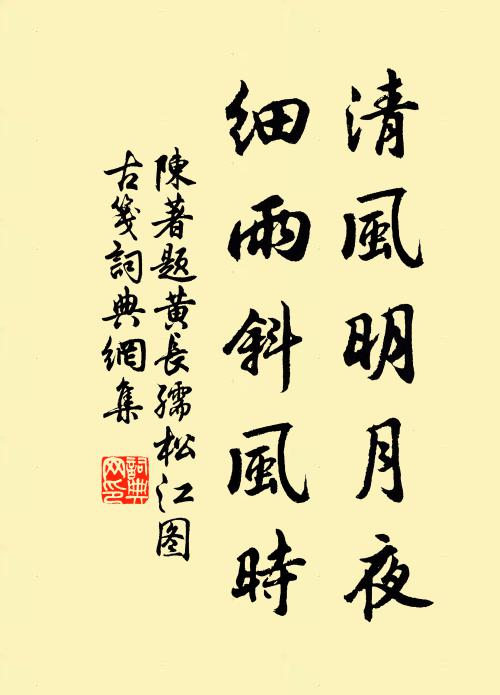 清風明月夜
細雨斜風時
陳著題黄長孺松江图
古箋詞典網集
詞典網印